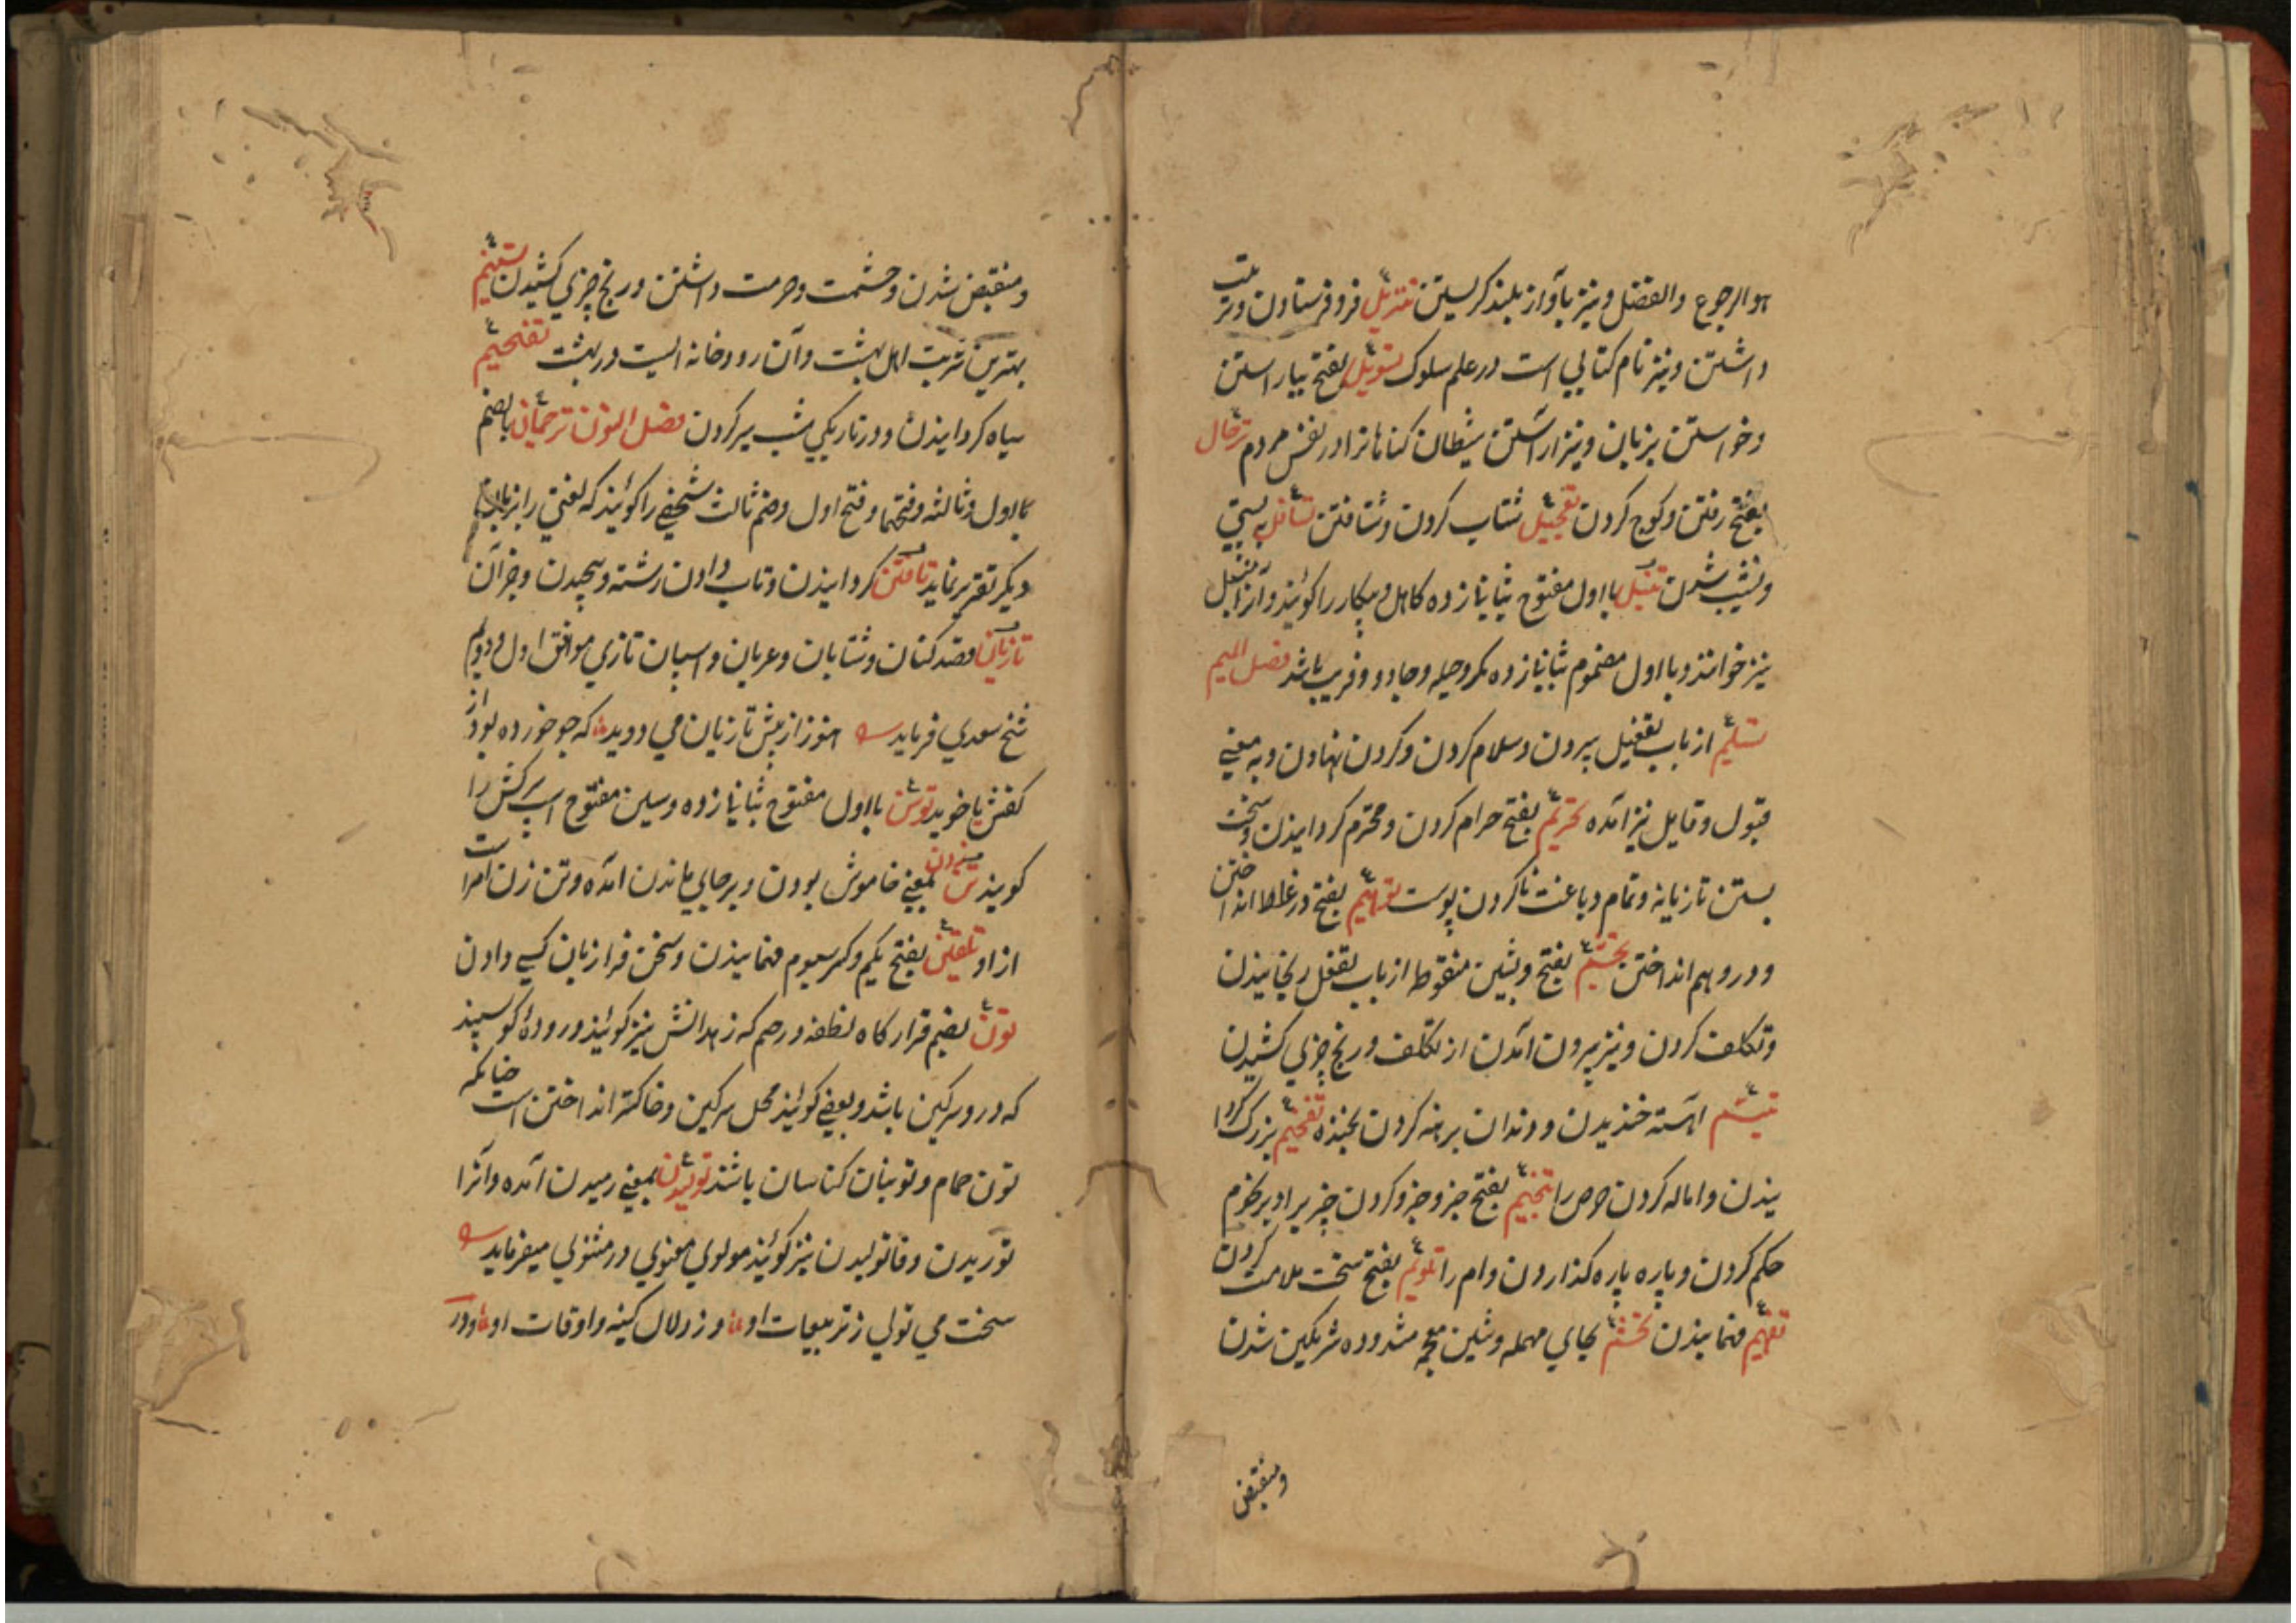 هو الرجوع والفضل و نیز بآواز بلند کریستن تنزیل فرو فرستادن و ترتیب
داشتن و نیز نام کتابی است در علم سلوک تسویل بفتح بیاراستن
و خواستن بزبان و نیز اراستن شیطان کناهانرا در نفس مردم ترحال
بفتح رفتن و کوچ کردن تعجیل شتاب کردن و شتافتن تسافل به پستی
و نشیب شدن تنبل با اول مفتوح بثانی زده کاهل و بیکار را کویند و آنرا
نیز خوانند و با اول مضموم بثانی زده مکر و حیله و جادو و فریب باشد فصل المیم
تسلیم از باب تفعیل سپردن و سلام کردن و کردن نهادن و به معنی
قبول و قایل نیز آمده تحریم بفتح حرام کردن و محترم کردانیدن و سخت
بستن تازیانه و تمام دباغت ناکردن پوست توهیم بفتح در غلط انداختن
و در وهم انداختن تجشم بفتح و بشین منقوط از باب تفعل رنجانیدن
و تکلف کردن و نیز بیرون آمدن از تکلف و رنج چیزی کشیدن
تبسم آهسته خندیدن و دندان برهنه کردن بخنده تفخیم بزرک کردا
نیدن و اماله کردن حرص را تنجیم بفتح جزو جزو کردن چیزیرا و بر نجوم
حکم کردن و پاره پاره کذاردن وام را تلویم بفتح سخت ملامت کردن
تفهیم فهمانیدن تحشم بحای مهمله و شین معجمه مشدده شرمکین شدن
و منقبض
و منقبض شدن و حشمت و حرمت داشتن و رنج چیزی کشیدن تسنیم
بهترین شربت اهل بهشت و آن رودخانه ایست در بهشت تفحیم
سیاه کردانیدن و در تاریکی شب سیر کردن فصل النون ترجمان بالضم
با اول و ثالثه و فتحهما و فتح اول و ضم ثالث شخصی را کویند که لغتی را بزبان
دیکر تقریر نماید تافتن کردانیدن و تاب دادن رشته و پیچیدن و جز آن
تازیان قصد کنان و شتابان و عربان و اسپان تازی موافق اول و دوم
شیخ سعدی فرماید هنوز از پیش تازیان می دوید که جو خورده بود از
کفش یا خوید توسن با اول مفتوح بثانی زده و سین مفتوح اسپ سرکش را
کویند تن زدن بمعنی خاموش بودن و بر جایی ماندن آمده و تن زن امر است
از او تلقین بفتح یکم و کسر سیوم فهمانیدن و سخن فرا زبان کسی دادن
تون بضم قرار کاه نطفه در رحم که زهدانش نیز کویند و رودهٔ کوسپند
که در و سرکین باشد و بعضی کویند محل سرکین و خاکستر انداختن است چنانکه
تون حمام و تونبان کناسان باشند تولیدن بمعنی رمیدن آمده و آنرا
توریدن و فاتولیدن نیز کویند مولوی معنوی در مثنوی میفرماید
سخت می تولی ز تربیعات او و ز دلال کینه و اوقات او و در